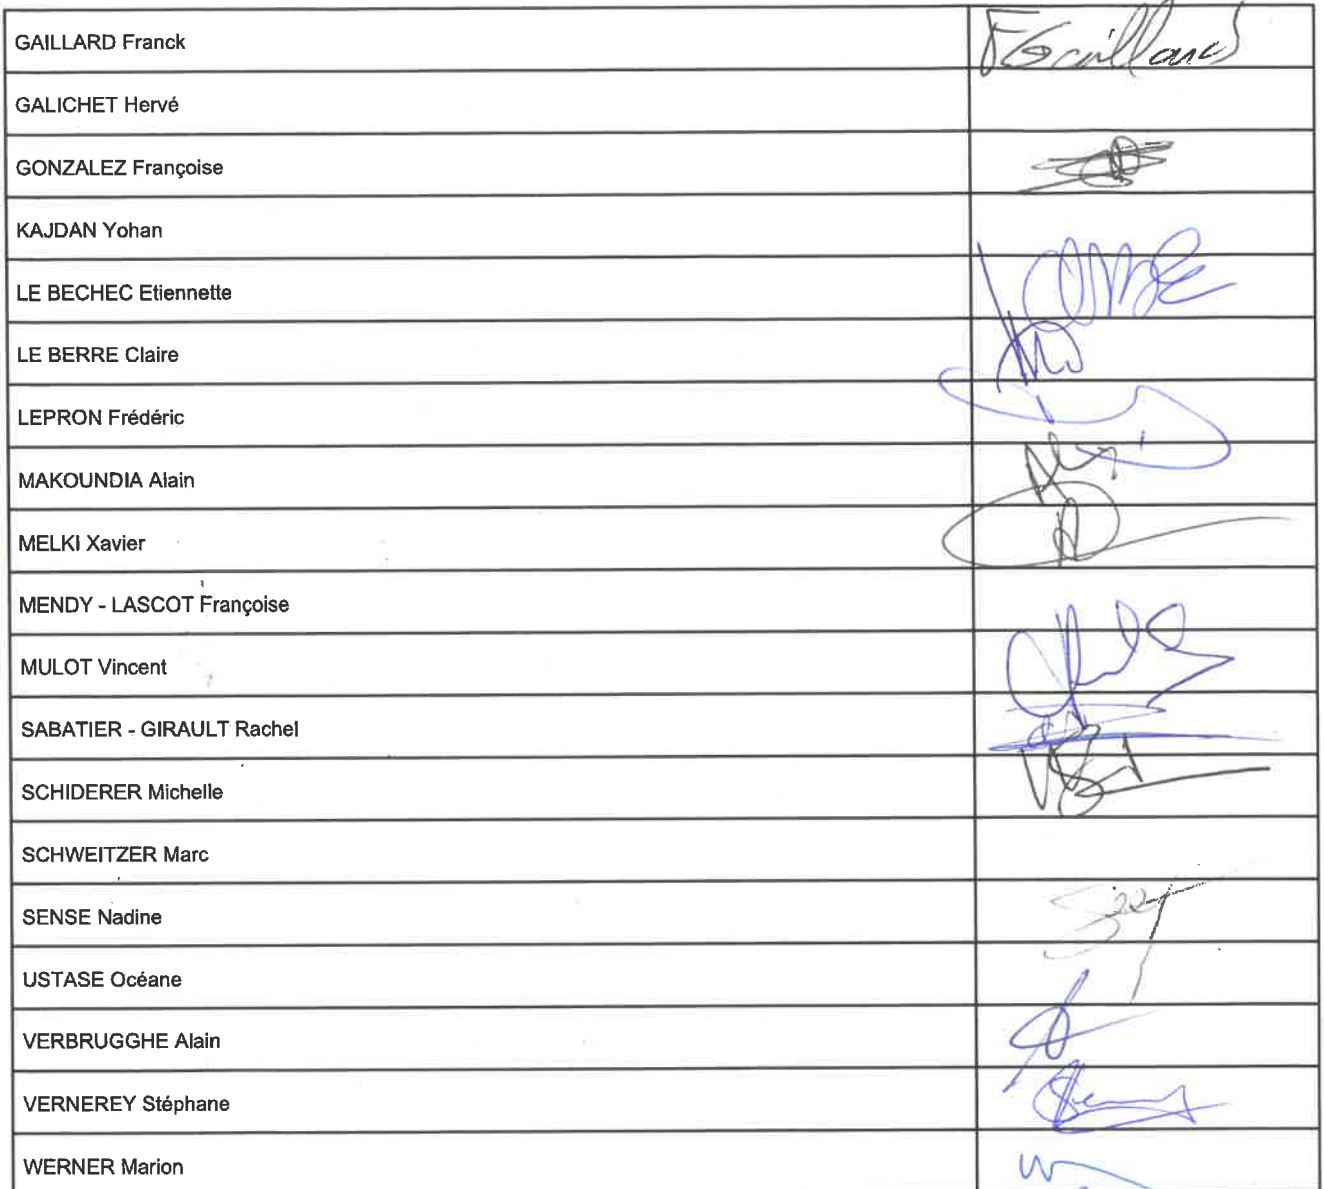 GAILLARD Franck
FGaillard
GALICHET Hervé
GONZALEZ Françoise
KAJDAN Yohan
LE BECHEC Etiennette
LE BERRE Claire
LEPRON Frédéric
MAKOUNDIA Alain
MELKI Xavier
MENDY - LASCOT Françoise
MULOT Vincent
SABATIER - GIRAULT Rachel
SCHIDERER Michelle
SCHWEITZER Marc
SENSE Nadine
USTASE Océane
VERBRUGGHE Alain
VERNEREY Stéphane
WERNER Marion